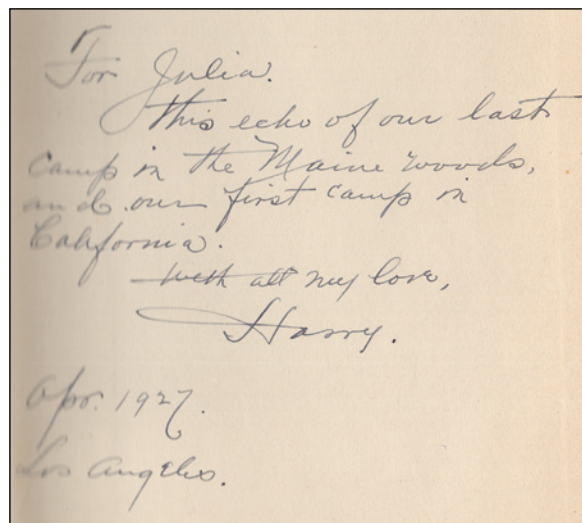 For Julia.
This echo of our last
camp in the Maine woods,
and our first camp in
California.
With all my love,
Harry.
Apr. 1927.
Los Angeles.